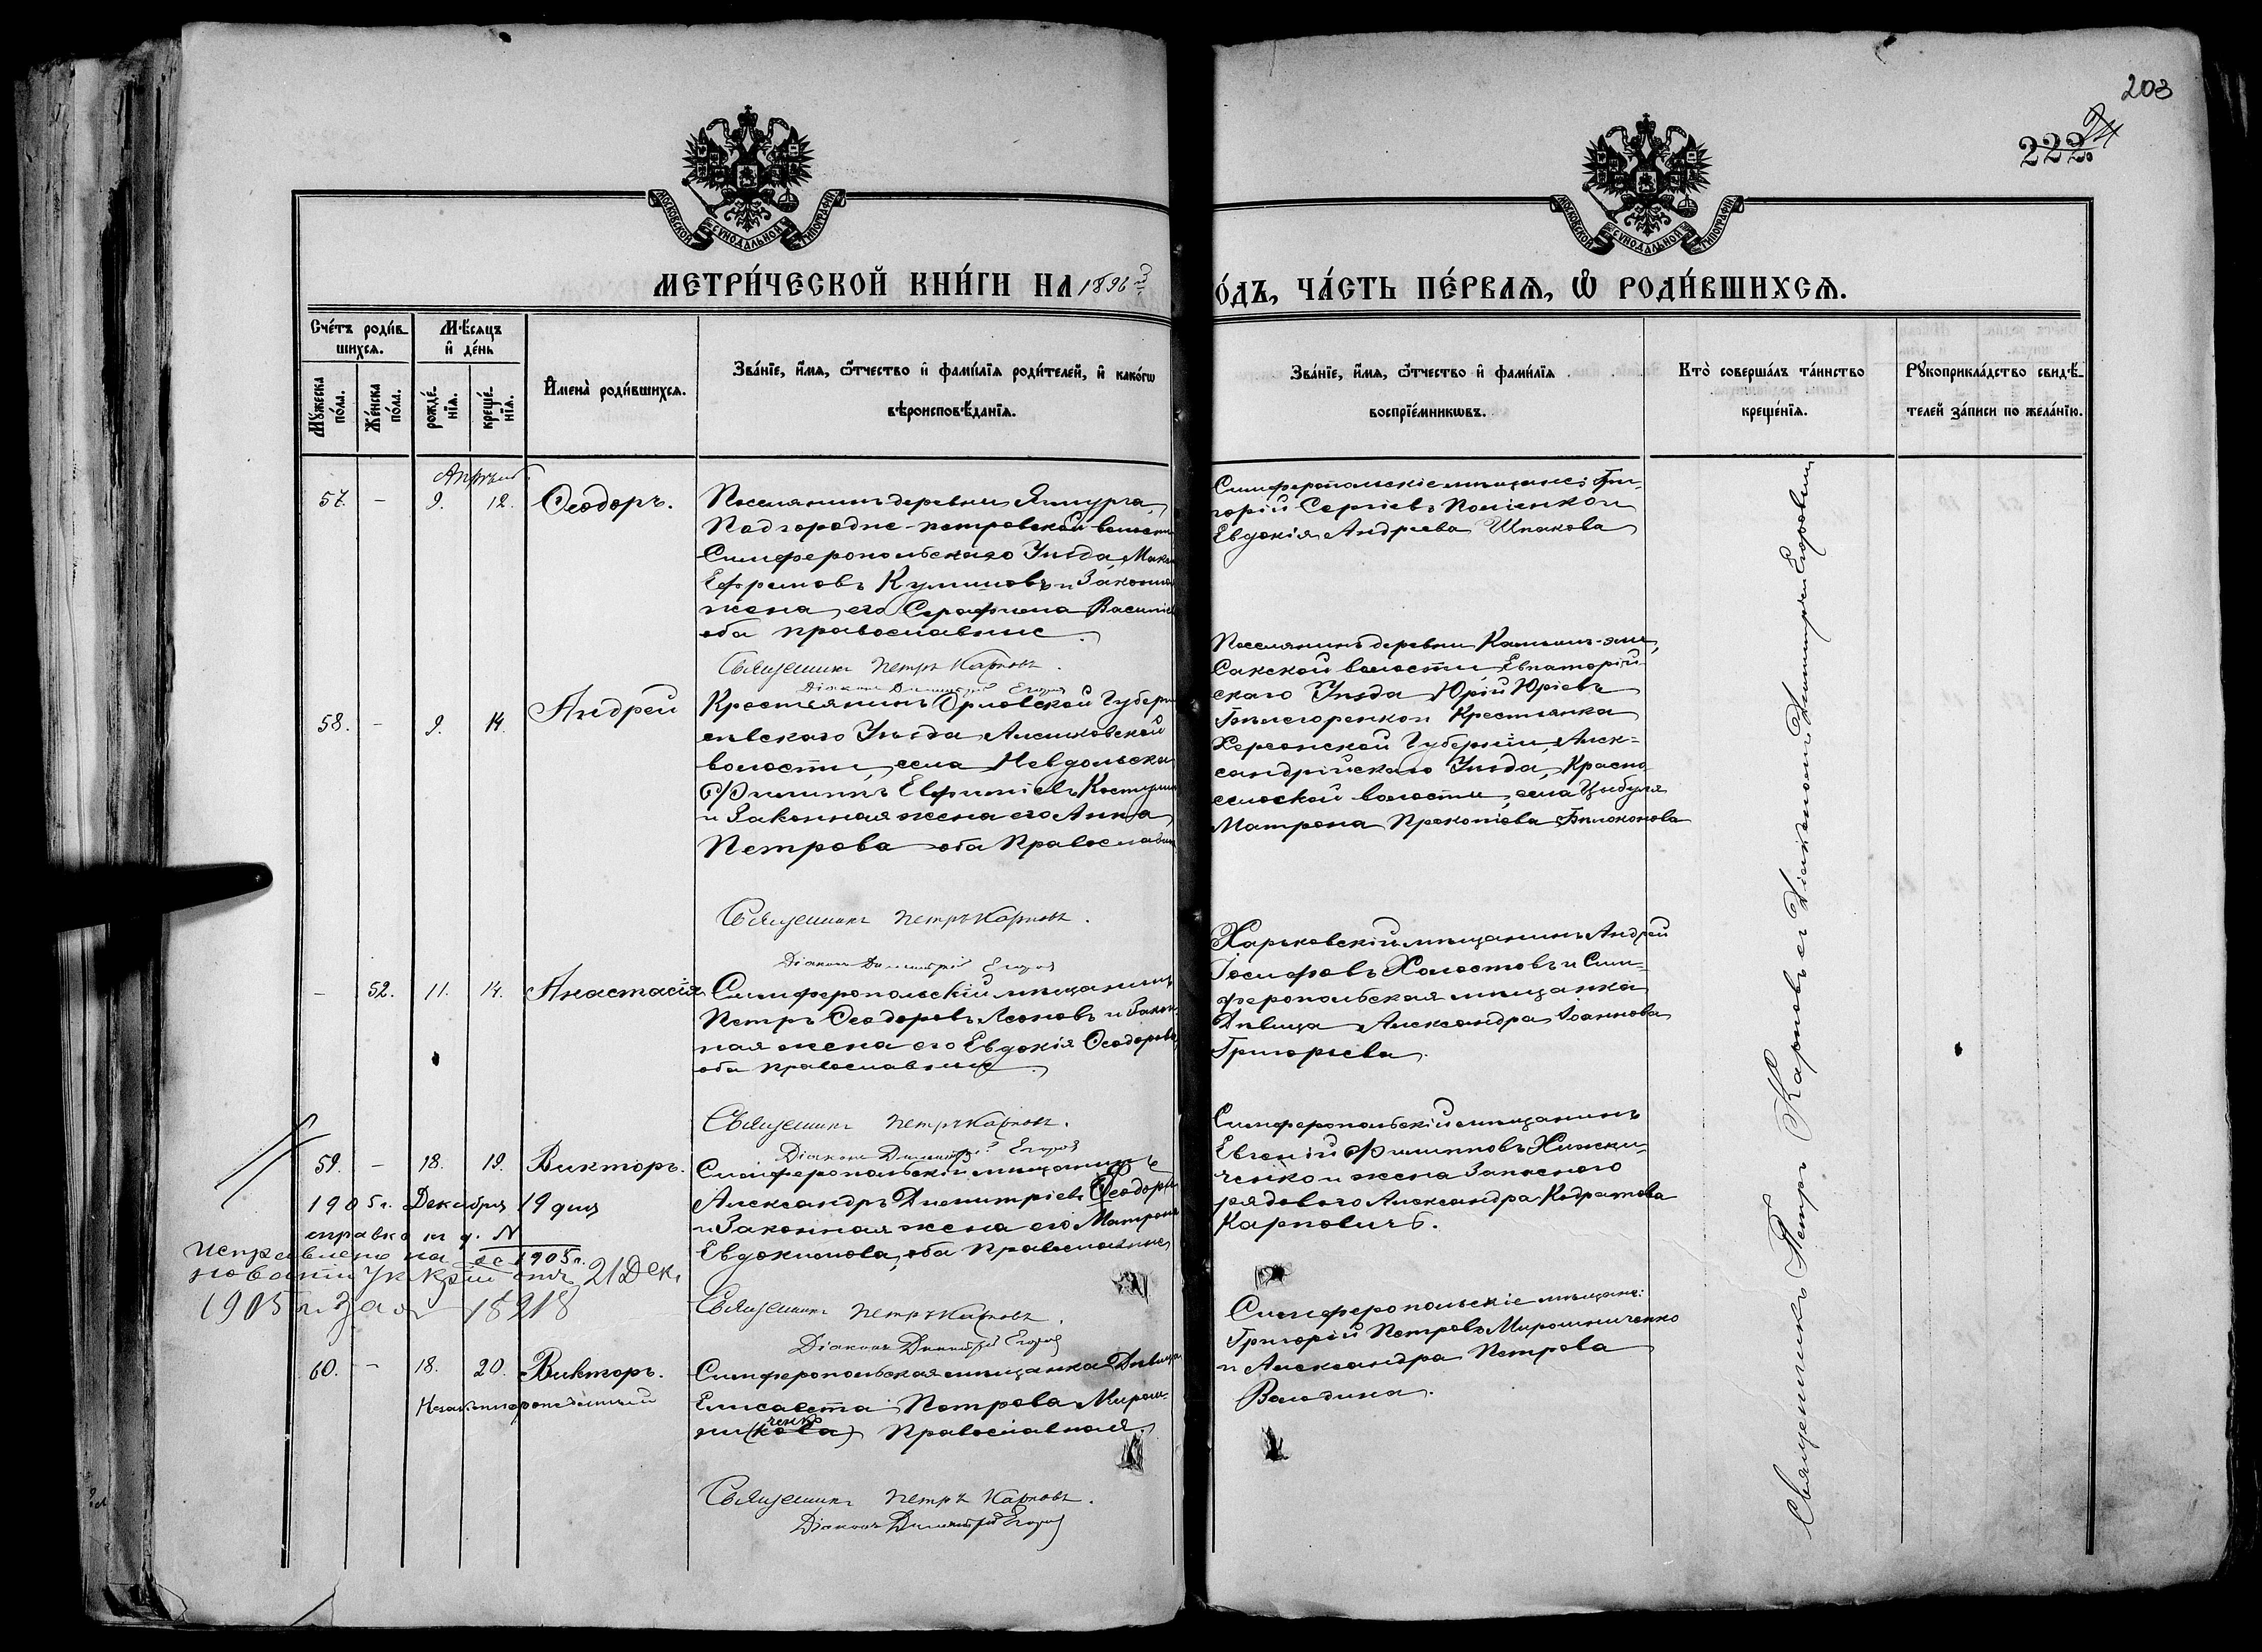 203
222.
МОСКОВСКОЙ СѴНОДАЛЬНОЙ ТИПОГРАФІИ
МОСКОВСКОЙ СѴНОДАЛЬНОЙ ТИПОГРАФІИ
МЕТРИ́ЧЕСКОЙ КНИ́ГИ НА 1896
О́ДЪ, ЧА́СТЬ ПЕ́РВАѦ, Ѡ РОДИ́ВШИХСѦ.
Сче́тъ роди́в-
шихсѧ.
Мѣ́сѧцъ
и де́нь
Мꙋ́жеска по́ла.
Же́нска по́ла.
рожде́-
нїѧ.
креще́-
нїѧ.
Имена̀ роди́вшихсѧ.
Зва́нїе, и́мѧ, ѻ́тчество и фами́лїѧ роди́телей, и како́гѡ
вѣроисповѣ́данїѧ.
Зва́нїе, и́мѧ, ѻ́тчество и фами́лїѧ
воспрїе́мникѡвъ.
Кто̀ соверша́лъ та́инство
креще́нїѧ.
Рꙋкоприкла́дство свидѣ́-
телей за́писи по жела́нїю.
Апрѣль.
57. - 9. 12. Ѳеодоръ.
Поселянинъ деревни Яшурга,
Подгородне-петровской волости
Симферопольскаго Уѣзда,
Ефремовъ и Законная
жена его Серафима
оба православные.
Священникъ Петръ Карповъ.
Діаконъ Димитрій Егоровъ
Симферопольскіе мѣщане: Гри-
горій Сергіевъ и
Евдокія Андреева Шпакова
58. - 9. 14. Андрей
Крестьянинъ Орловской Губерн
сѣвскаго Уѣзда Алешковской
волости, села Невдольска
Филиппъ Евфиміевъ
и Законная жена его Анна
Петрова оба Православные
Священникъ Петръ Карповъ.
Діаконъ Димитрій Егоровъ
Поселянинъ деревни
Сакской волости, Евпаторій-
скаго Уѣзда Юрій Юріевъ
и Крестьянка
Херсонской Губерніи, Алек-
сандрійскаго Уѣзда, Красно-
сельской волости, села Цыбуля
Матрона Прокопіева Бѣлоконова
- 52. 11. 14. Анастасія
Симферопольскій мѣщанинъ
Петръ Ѳеодоровъ Леоновъ и Закон-
ная жена его Евдокія Ѳеодорова,
оба православные.
Священникъ Петръ Карповъ.
Діаконъ Димитрій Егоровъ
Харьковскій мѣщанинъ Андрей
Іосифовъ Холостовъ и Сим-
феропольская мѣщанка
Дѣвица Александра Іоаннова
Григорьева.
59. - 18. 19. Викторъ.
Симферопольскій мѣщанинъ
Александръ Димитріевъ
и Законная жена его Матрона
Евдокимова, оба Православные
Священникъ Петръ Карповъ.
Діаконъ Димитрій Егоровъ
Симферопольскій мѣщанинъ
Евгеній Филипповъ Хижни-
ченко и жена Запаснаго
рядового Александра Кодратова
Карповичъ.
1905 г. Декабря 19 дня
справка
Исправлено на ос-
новании 21 Дек.
1905 г. за № 18218
60. - 18. 20. Викторъ.
Незаконнорожденный
Симферопольская мѣщанка Дѣвица
Елисавета Петрова Мирош-
ни(кова)ченко Православная.
Священникъ Петръ Карповъ.
Діаконъ Димитрій Егоровъ
Симферопольскіе мѣщане:
Григорій Петровъ Мирошниченко
и Александра Петрова
Володина.
Священникъ Петръ Карповъ съ Діакономъ Димитріемъ Егоровым